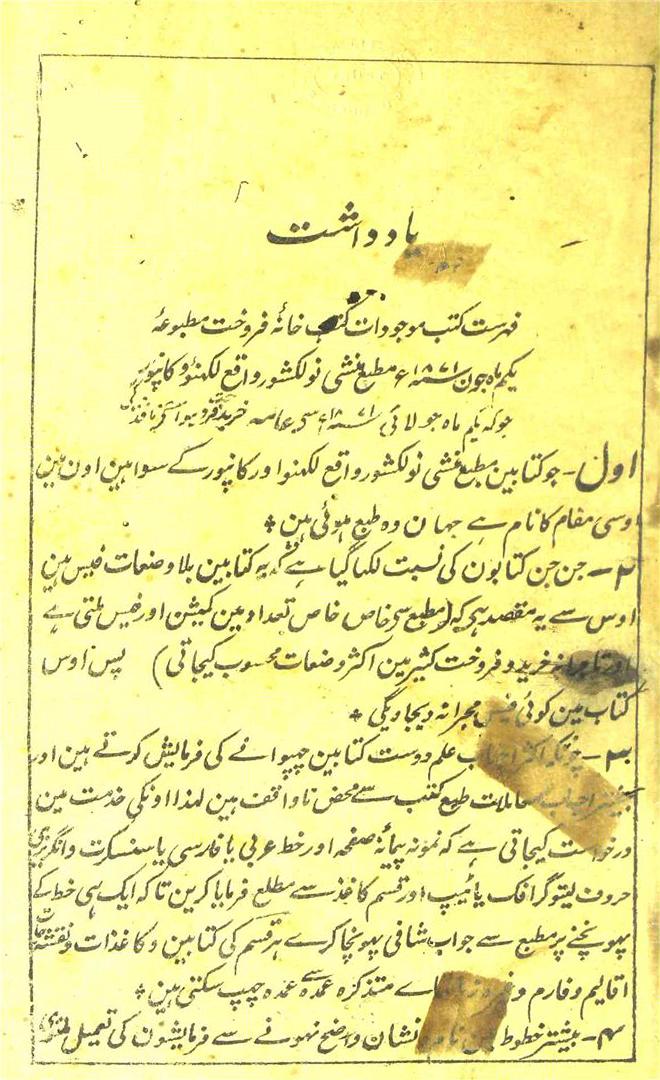 یادداشت
فہرست کتب موجودات کتب خانۂ فروخت مطبوعۂ
یکم ماہ جون سنہ ۱۸۷۱ء مطبع منشی نولکشور واقع لکھنؤ و کانپور
جوکہ یکم ماہ جولائی سنہ ۱۸۷۱ء سے
اول - جو کتابین مطبع منشی نولکشور واقع لکھنو اور کانپور کے سوا ہین اون مین
اوسی مقام کا نام ہے جہان وہ طبع ہوئی ہین *
۲ - جن جن کتابون کی نسبت لکھا گیا ہے کہ یہ کتابین بلا وضعات فیس ہین
اوس سے یہ مقصد ہی کہ (مطبع سی خاص خاص تعداد مین کمیشن اور فیس ملتی ہے
خرید و فروخت کثیر مین اکثر وضعات محسوب کیجاتی) پس اوس
کتاب مین کوئی فیس مجرا نہ دیجاویگی *
۳ - چونکہ اکثر احباب علم دوست کتابین چھپوانے کی فرمایش کرتے ہین اور
بیشتر احباب معاملات طبع کتب سے محض ناواقف ہین لہذا اونکی خدمت مین
درخواست کیجاتی ہے کہ نمونہ پیمانۂ صفحہ اور خط عربی یا فارسی یا سنسکرت و انگریزی
حروف لیتوگرافک یا ٹیپ اور قسم کاغذ سے مطلع فرمایا کرین تا کہ ایک ہی خط کے
پہونچنے پر مطبع سے جواب شافی پہونچا کرے ہر قسم کی کتابین و کاغذات و نقشہ جات
اقالیم و فارم و متذکرہ عمدہ سے عمدہ چھپ سکتی ہین *
۴ - بیشتر خطوط نشان واضح نہونے سے فرمایشون کی تعمیل